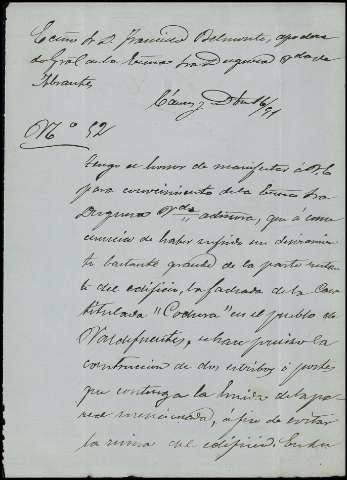 Excmo Sr D. Francisco Belmonte, apodera
do Gral de la Excma Sra Duquesa Vda de
Abrantes
Cáceres Dbre 16/91
Nº 52
Tengo el honor de manifestar á V.E
para conocimiento de la Excma Sra
Duquesa Vda admora, que á conse
cuencia de haber sufrido un
te bastante grande de la parte restan
te del edificio, la fachada de la Casa
titulada "Codura" en el pueblo de
Valdefuentes, se hace preciso la
construccion de dos estribos ó postes
que contenga la de la pa
red mencionada, á fin de evitar
la ruina del edificio.